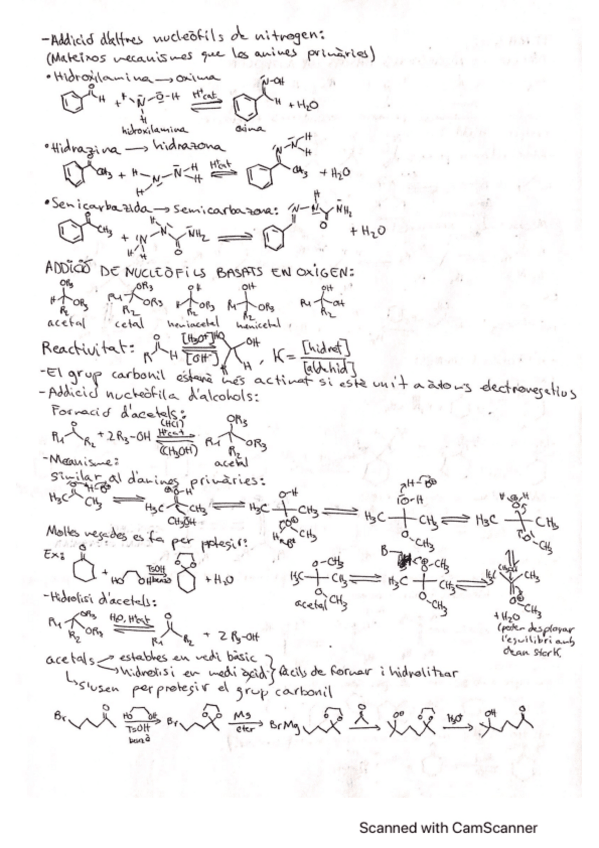 -Addició d'altres nucleòfils de nitrogen:
(Mateixos mecanismes que les amines primàries)
•Hidroxilamina → oxima
H⁺cat
+ H₂O
hidroxilamina
oxima
•Hidrazina → hidrazona
H⁺cat
+ H₂O
•Semicarbazida → semicarbazona:
+ H₂O
ADDICIÓ DE NUCLEÒFILS BASATS EN OXIGEN:
acetal cetal hemiacetal hemicetal
Reactivitat: [H₃O⁺] [OH⁻] , K = [hidrat] / [aldehid]
-El grup carbonil estarà més activat si està unit a àtoms electronegatius
-Addició nucleòfila d'alcohols:
Formació d'acetals:
+ 2R₃-OH (HCl) H⁺cat (CH₃OH)
acetal
-Mecanisme:
similar al d'amines primàries:
Moltes vegades es fa per protegir:
Ex:
+ TsOH + H₂O
acetal
+ H₂O
(poden desplaçar
l'equilibri amb
dean stark
-Hidrolisi d'acetals:
H₂O, H⁺cat + 2 R₃-OH
acetals → estables en medi bàsic
→ hidrolisi en medi àcid } fàcils de formar i hidrolitzar
↳ s'usen per protegir el grup carbonil
Br TsOH Br Mg eter BrMg H₃O⁺ OH
Scanned with CamScanner